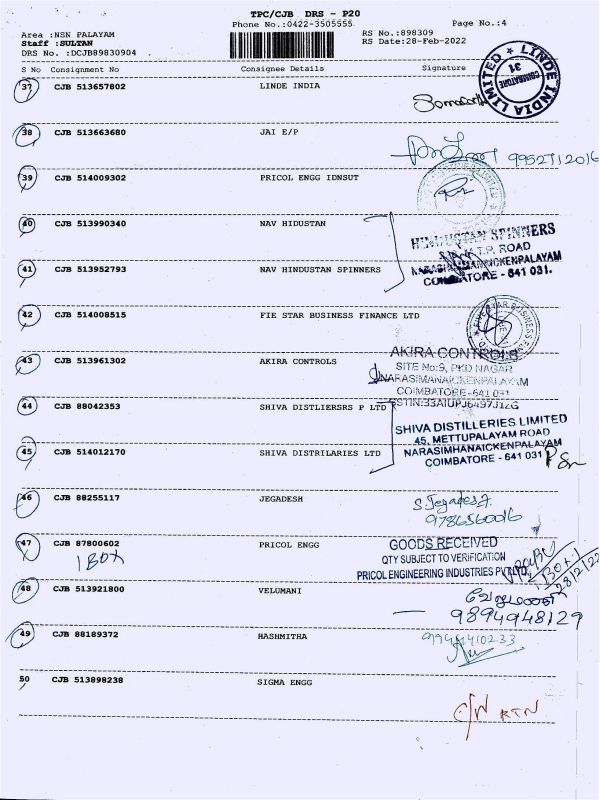 TPC/CJB DRS - P20
Phone No.:0422-3505555
Page No.:4
Area :NSN PALAYAM
RS No.:898309
Staff :SULTAN
RS Date:28-Feb-2022
DRS No. :DCJB89830904
S No Consignment No Consignee Details Signature
37 CJB 513657802 LINDE INDIA
LINDE INDIA LIMITED
COIMBATORE
31
38 CJB 513663680 JAI E/P
9952712016
39 CJB 514009302 PRICOL ENGG IDNSUT
40 CJB 513990340 NAV HIDUSTAN
HINDUSTAN SPINNERS
M.T.P. ROAD
NARASIMHANAICKENPALAYAM
COIMBATORE - 641 031.
41 CJB 513952793 NAV HINDUSTAN SPINNERS
42 CJB 514008515 FIE STAR BUSINESS FINANCE LTD
43 CJB 513961302 AKIRA CONTROLS
AKIRA CONTROLS
SITE No:9, PKD NAGAR
NARASIMANAICKENPALAYAM
COIMBATORE-641 031
44 CJB 88042353 SHIVA DISTLIERSRS P LTD
SHIVA DISTILLERIES LIMITED
45, METTUPALAYAM ROAD
NARASIMHANAICKENPALAYAM
COIMBATORE - 641 031
45 CJB 514012170 SHIVA DISTRILARIES LTD
46 CJB 88255117 JEGADESH
S Jegadesh
9786560016
47 CJB 87800602 PRICOL ENGG
1 BOX
GOODS RECEIVED
QTY SUBJECT TO VERIFICATION
PRICOL ENGINEERING INDUSTRIES PVT LTD
1 BOX
28/2/22
48 CJB 513921800 VELUMANI
வேலுமணி
9894948129
49 CJB 88189372 HASHMITHA
50 CJB 513898238 SIGMA ENGG
C/N RTN